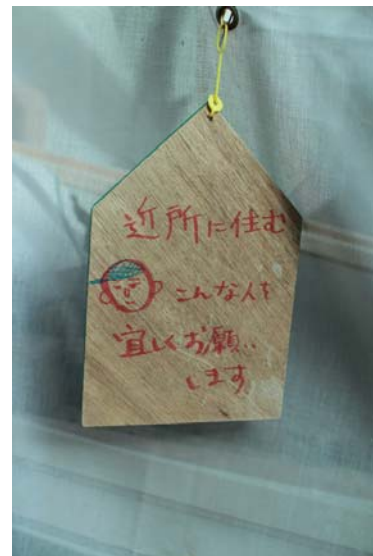 近所に住む
こんな人を
宜しくお願い
します